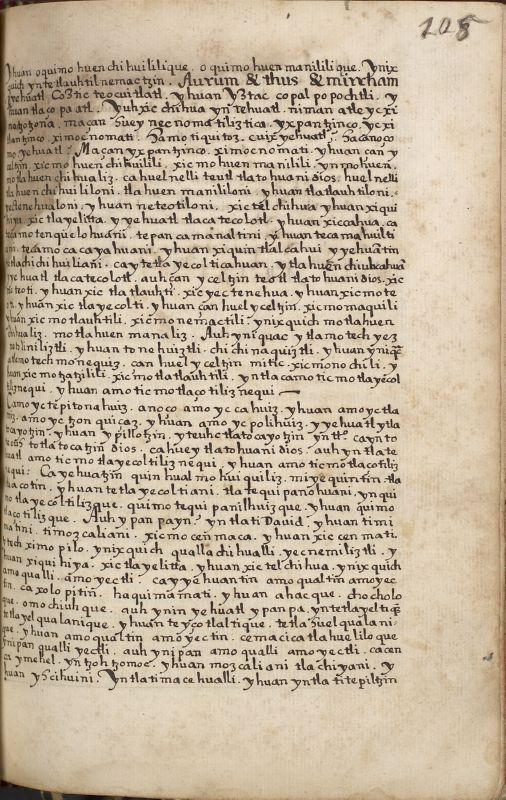 108
yhuan oquimo huen chi huililique. oquimo huen manililique. ynix
quich yn te tlauhtil nemac tzin. Aurum & thus & mirrham
yehuatl Coztic teocuitlatl. yhuan yztac copal popochtli. y
huan tlaco patl. yuhxic chihua yn tehuatl. niman atle yc xi
matzotzona. maçan huey nec noma tiliztica. yxpan tzinco. yc xi
ximoc nomati.
mo yehuatl: Maçan yxpan tzinco. ximoc nomati. yhuan çan y
celtzin. xic mo huen chihuilili. xic mo huen manilili. yn mo huen.
mo tla huen chi hualiz. ca huel nelli teutl tlatohuani dios. huel nelli
tla huen chi huililoni. tla huen manililoni. yhuan tlatlauhtiloni.
yectene hualoni. yhuan neteotiloni. xic tel chihua yhuan xiqui
hiya. xic tlayelitta. y yehuatl tlacatecolotl. yhuan xiccahua. ca
teca mo tenquelo huani. te pan ca manaltini. yhuan teca mahuilti
ani. teca mo cacayahuani. yhuan xiquin tlalcahui. yyehuantin
tetlachichihuiliani. ca y tetlayecolticahuan. ytlahuen chiuhcahuan
yehuatl tlacatecolotl. auh çan ycel tzin teotl tlatohuani dios. xic
mo teoti. yhuan xic tlatlauhti. xic yectenehua. yhuan xic mo te
yhuan xic tlayecolti. yhuan çan huel ycel tzin. xic mo maquili
yhuan xic mo tlauhtili. xic mo nemactili. ynixquich motlahuen
chihualiz. motlahuen manaliz. Auh yniquac ytla motech yez
yhuan tonehuiztli. chichinaquiztli. yhuan yniquac
atle motech monequiz. can huel ycel tzin mitic. xic mo nochili. y
huan xic mo tzatzilili. xic mo tlatlauhtili. yntlacamo tic motlayecol
tiliznequi. yhuan amo tic motlaçotiliznequi —
Camo yc tepitonahuiz. anoco amo yc cahuiz. yhuan amo yc tla
miz. amo yc tzonquiçaz. yhuan amo yc polihuiz. yyehuatl ytla
tocayotzin. yhuan ypillotzin. yteuhctlatocayotzin. yn tto. caynto
teotzin totlatocatzin dios. cahuey tlatohuani dios. auh yntla te
huatl amo tic motlayecoltiliznequi. yhuan amo tic motlaçotiliz
nequi: Ca yehuatzin quin hual mohuiquiliz. miyequintin tla
tlacotin. yhuan tetlayecoltiani. tlatequipanohuani. ynqui
mo tlayecoltilizque. quimo tequipanilhuizque. yhuan quimo
tlaçotilizque. Auh ypanpayn. yntlati David. yhuan timi
matini. timozcaliani. xic mo cenmaca. yhuan xic cenmati.
ytech ximopilo. ynixquich qualla chihualli. yecnemiliztli. y
huan xiquihiya. xic tlayelitta. yhuan xic telchihua. ynixquich
amo qualli. amo yectli. cayyehuantin amo qualtin amo yec
tin. caxolopitin. haquimamati. yhuan ahacque. chocholo
que. omochiuhque. auh ynin yehuatl ypanpa. yntetlayeltique
tetlayelqualanique. yhuan teyçotlaltique. tetlahuelqualani
que. yhuan amo qualtin amo yectin. cemacica tlahueliloque
ynipan qualli yectli. auh ynipan amo qualli amo yectli. ca cen
ca ymehel. yntzohtzomoc. yhuan mozcaliani tlachiyani. y
huan yhcihuini. Yntlatimacehualli. yhuan yntla titepiltzin